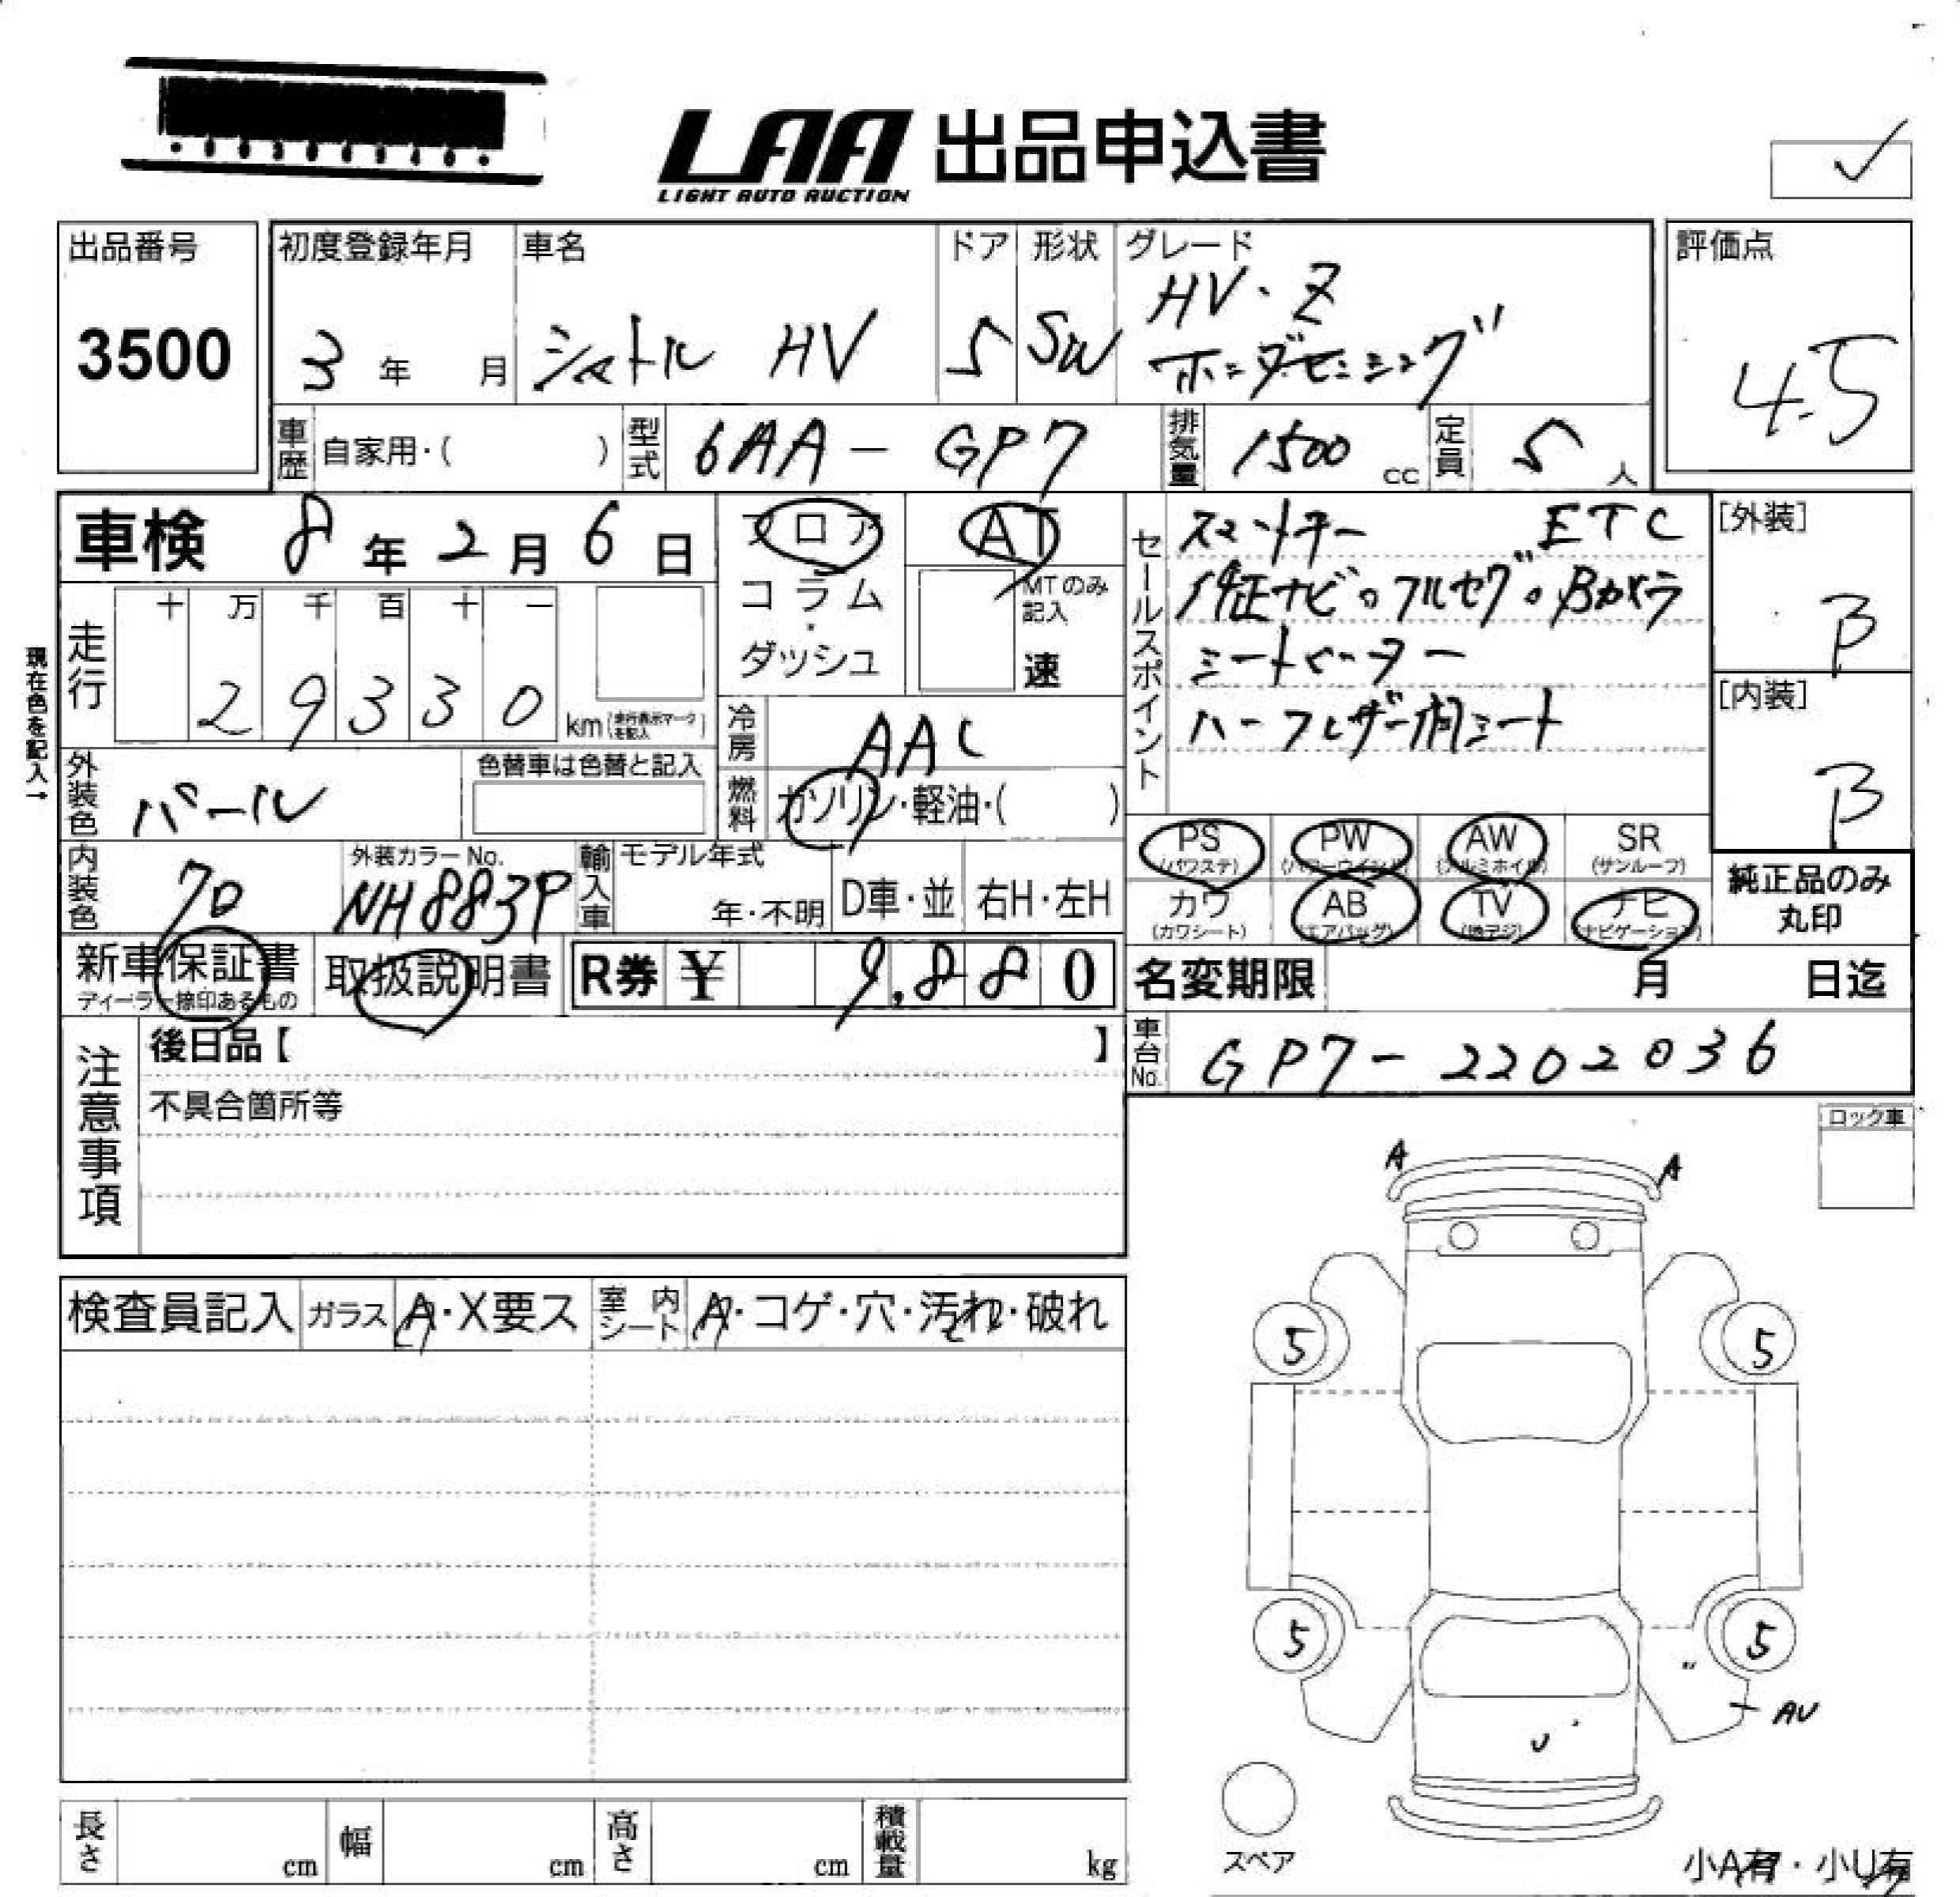 LAA 出品申込書
LIGHT AUTO AUCTION
出品番号
3500
初度登録年月
3年 月
車名
シャトル HV
ドア
5
形状
SW
グレード
HV・Z
ホンダセンシング
評価点
4.5
車歴 自家用・( )
型式 6AA-GP7
排気量 1500 cc
定員 5 人
車検 8年2月6日
フロア
コラム・
ダッシュ
AT
MTのみ記入
速
セールスポイント
スマートキー ETC
純正ナビ。フルセグ。Bカメラ
シートヒーター
ハーフレザー調シート
[外装]
B
[内装]
B
現在色を記入→
走行
十 万 千 百 十 一
2 9 3 3 0
km(走行表示マークを記入)
冷房 AAC
燃料 ガソリン・軽油・( )
外装色 パール
色替車は色替と記入
内装色 70
外装カラーNo.
NH883P
輸入車
モデル年式
年・不明
D車・並
右H・左H
PS (パワステ)
PW (パワーウインド)
AW (アルミホイル)
SR (サンルーフ)
カワ (カワシート)
AB (エアバッグ)
TV (地デジ)
ナビ (ナビゲーション)
純正品のみ
丸印
新車保証書
ディーラー捺印あるもの
取扱説明書
R券 ¥ 9,880
名変期限 月 日迄
車台No. GP7-2202036
注意事項
後日品【 】
不具合箇所等
ロック車
A A
検査員記入
ガラス A・X要ス
室内シート A・コゲ・穴・汚れ・破れ
5 5
5 5
〃
AU
U
スペア
長さ cm
幅 cm
高さ cm
積載量 kg
小A有・小U有